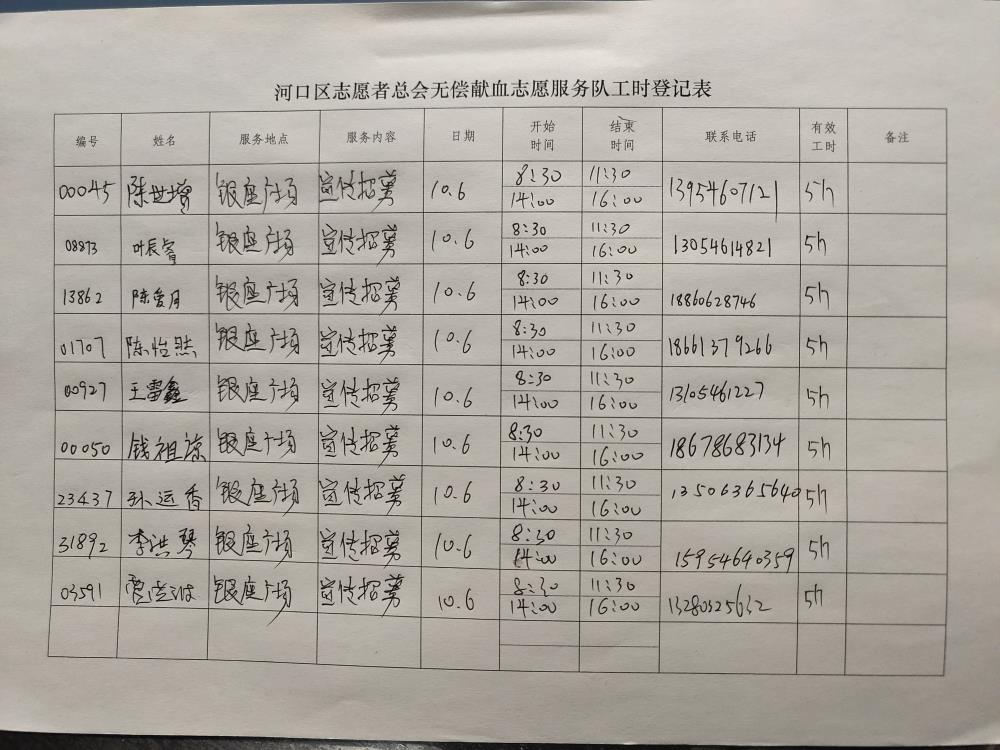 河口区志愿者总会无偿献血志愿服务队工时登记表
编号 姓名 服务地点 服务内容 日期 开始时间 结束时间 联系电话 有效工时 备注
00045 陈世增 银座广场 宣传招募 10.6 8:30 11:30 13954607121 5h
14:00 16:00
08873 叶辰睿 银座广场 宣传招募 10.6 8:30 11:30 13054614821 5h
14:00 16:00
13862 陈爱月 银座广场 宣传招募 10.6 8:30 11:30 18860628746 5h
14:00 16:00
01707 陈怡然 银座广场 宣传招募 10.6 8:30 11:30 18661379266 5h
14:00 16:00
00927 王雷鑫 银座广场 宣传招募 10.6 8:30 11:30 13105461227 5h
14:00 16:00
00050 钱祖谅 银座广场 宣传招募 10.6 8:30 11:30 18678683134 5h
14:00 16:00
23437 孙运香 银座广场 宣传招募 10.6 8:30 11:30 13506365640 5h
14:00 16:00
31892 李洪琴 银座广场 宣传招募 10.6 8:30 11:30 15954640359 5h
14:00 16:00
03591 银座广场 宣传招募 10.6 8:30 11:30 13280325632 5h
14:00 16:00